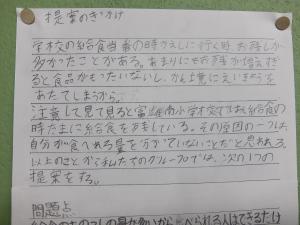 提案のきっかけ
学校の給食当番の時かえしに行く時、お残しが
多かったことがある。あまりにもお残しが増えす
ぎると食品がもったいないし、かん境にえいきょうを
あたえてしまうから。
注意して見て見ると富雄南小学校では給食の
時たまに給食を残している。その原因の一つは
自分が食べれる量をつがていないことだと思われる。
以上のことから私たちのグループでは、次の1つの
提案をする。
問題点
べられる人はできるだけ